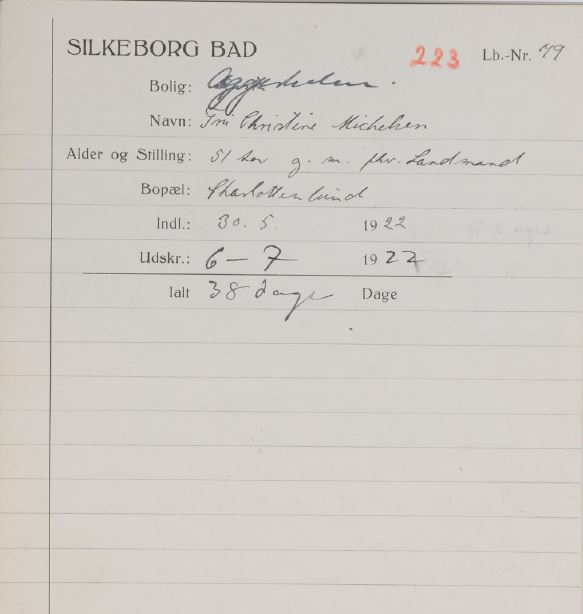 SILKEBORG BAD 223 Lb.-Nr. 79
Bolig:
Navn: Fru Christine Michelsen
Alder og Stilling: 51 Aar g. m. fhv. Landmand
Bopæl: Charlottenlund
Indl.: 30. 5. 1922
Udskr.: 6 - 7 1922
Ialt 38 dage Dage